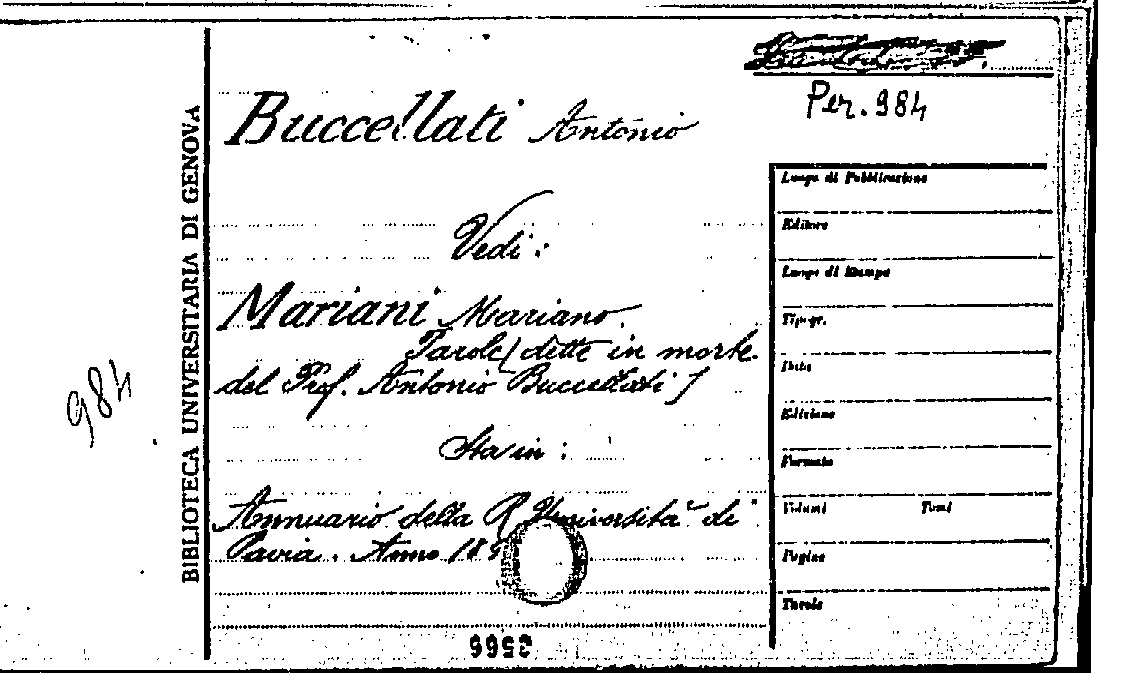 Per. 984
Buccellati Antonio
Vedi:
Mariani Mariano.
Parole (dette in morte
del Prof. Antonio Buccellati)
Sta in:
Annuario della R. Università di
Pavia. Anno
984
BIBLIOTECA UNIVERSITARIA DI GENOVA
Luogo di Pubblicazione
Editore
Luogo di Stampa
Tipogr.
Data
Edizione
Formato
Volumi Tomi
Pagine
Tavole